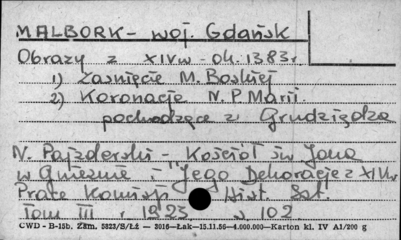 MALBORK - woj. Gdańsk
Obrazy z XIV w - ok. 1383 r.
1) Zaśnięcie M. Boskiej
2) Koronacje N. P. Marii
pochodzące z Grudziądza
N. Pajzderski - Kościół św Jana
w Gnieźnie i Jego Dekoracje z XIV w.
Prace Komisji Hist. Szt.
Tom III r. 1923 s 102
CWD - B-15b. Zam. 5823/S/Łź — 3016—Łak—15.11.56—4.000.000—Karton kl. IV A1/200 g